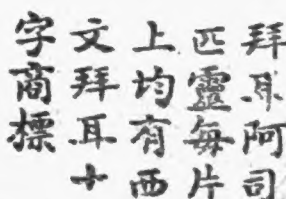 拜耳阿司
匹靈每片
上均有西
文拜耳十
字商標